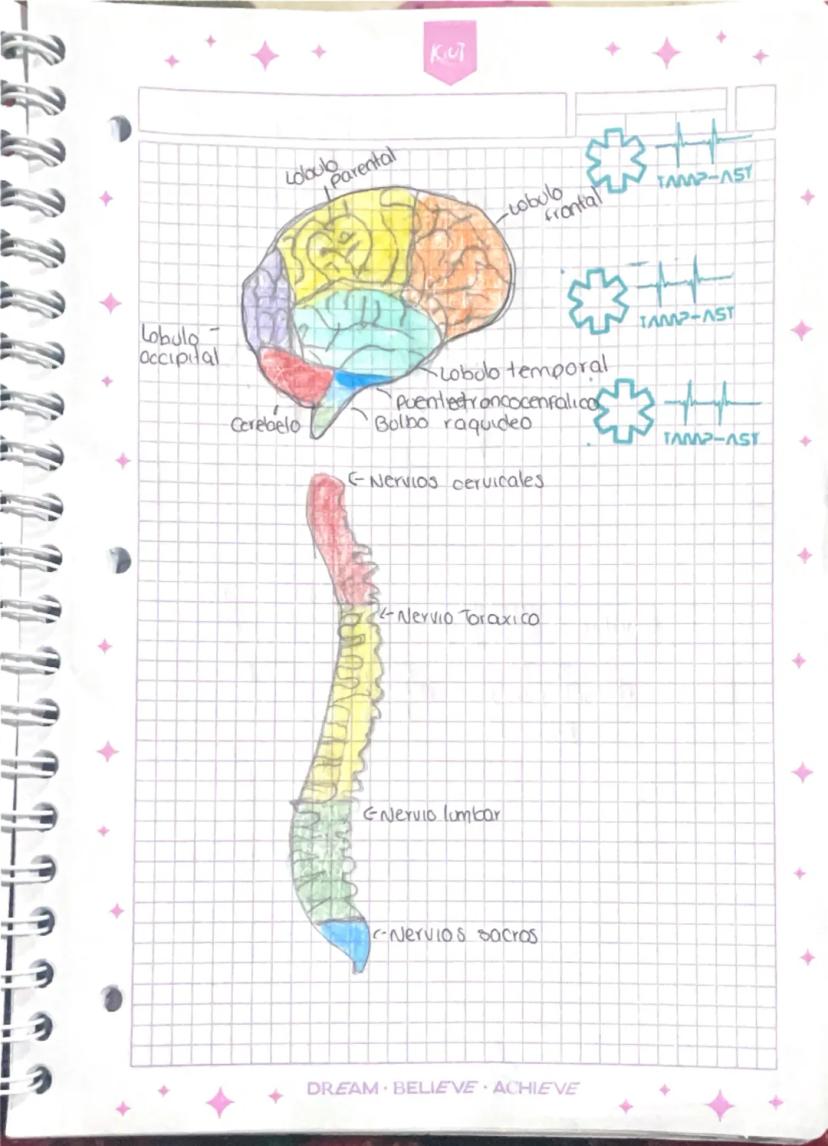 KIUT
Lobulo
parental
Lobulo
frontal
TAMP-AST
TAMP-AST
Lobulo
occipital
Lobulo temporal
Puentetroncocenfalico
TAMP-AST
Cerebelo
Bolbo raquideo
Nervios cervicales
Nervio Toraxico
Nervio lumbar
Nervios sacros
DREAM · BELIEVE · ACHIEVE